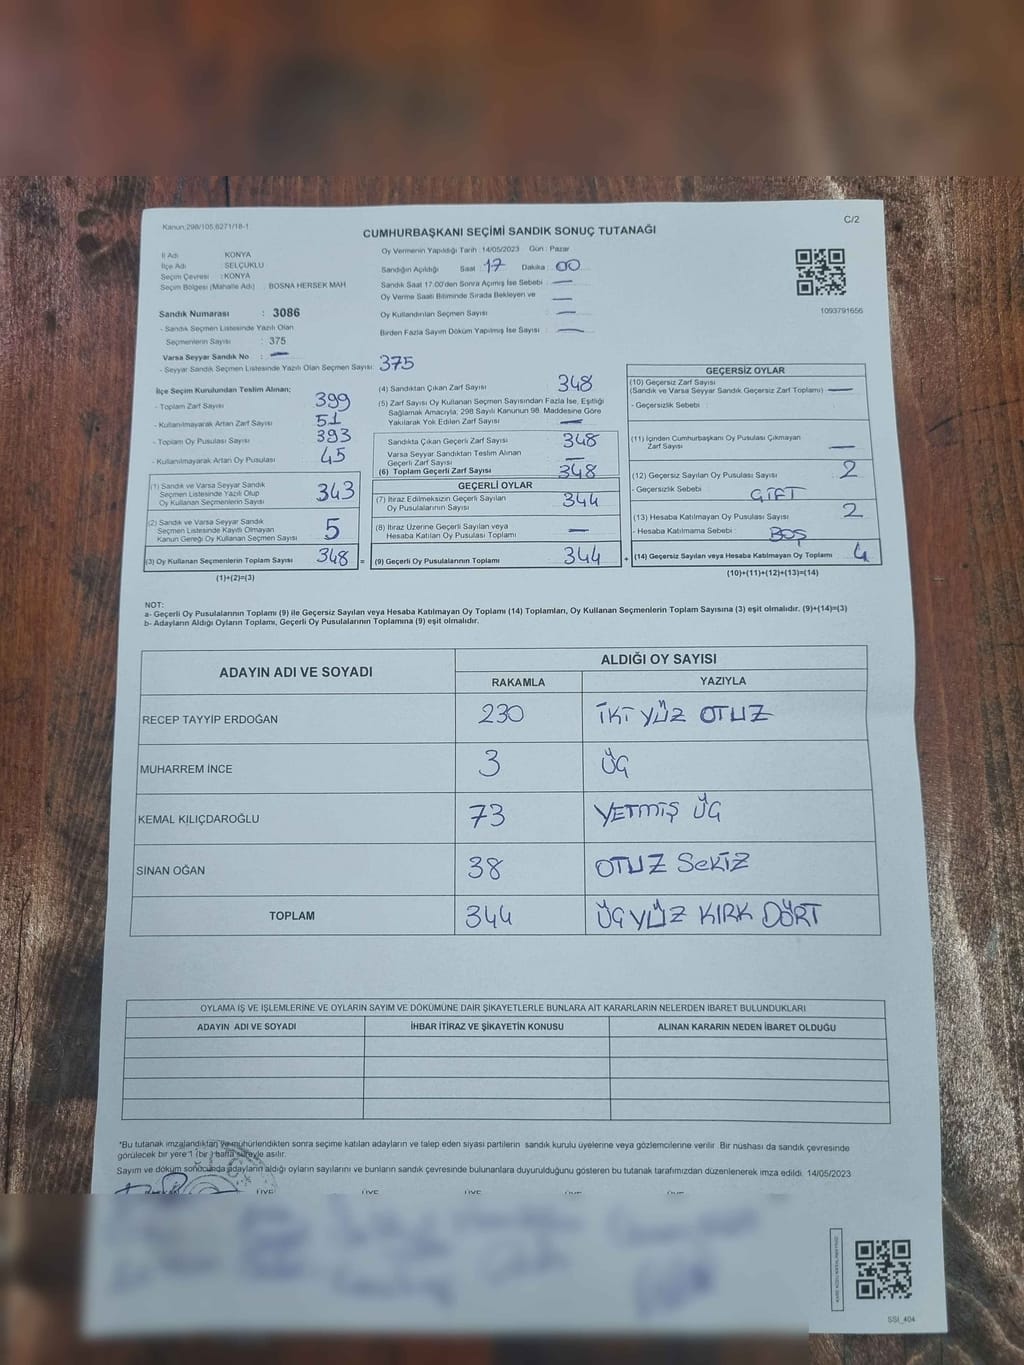 Kanun:298/105,6271/18-1
C/2
CUMHURBAŞKANI SEÇİMİ SANDIK SONUÇ TUTANAĞI
İl Adı KONYA
İlçe Adı SELÇUKLU
Seçim Çevresi : KONYA
Seçim Bölgesi (Mahalle Adı) : BOSNA HERSEK MAH.
Sandık Numarası : 3086
- Sandık Seçmen Listesinde Yazılı Olan
Seçmenlerin Sayısı : 375
Varsa Seyyar Sandık No : —
- Seyyar Sandık Seçmen Listesinde Yazılı Olan Seçmen Sayısı: 375
Oy Vermenin Yapıldığı Tarih : 14/05/2023 Gün : Pazar
Sandığın Açıldığı Saat : 17 Dakika : 00
Sandık Saat 17.00'den Sonra Açımış İse Sebebi : —
Oy Verme Saati Bitiminde Sırada Bekleyen ve —
Oy Kullandırılan Seçmen Sayısı : —
Birden Fazla Sayım Döküm Yapılmış İse Sayısı : —
1093791656
İlçe Seçim Kurulundan Teslim Alınan;
- Toplam Zarf Sayısı 399
- Kullanılmayarak Artan Zarf Sayısı 51
- Toplam Oy Pusulası Sayısı 393
- Kullanılmayarak Artan Oy Pusulası 45
(1) Sandık ve Varsa Seyyar Sandık
Seçmen Listesinde Yazılı Olup
Oy Kullanan Seçmenlerin Sayısı 343
(2) Sandık ve Varsa Seyyar Sandık
Seçmen Listesinde Kayıtlı Olmayan
Kanun Gereği Oy Kullanan Seçmen Sayısı 5
(3) Oy Kullanan Seçmenlerin Toplam Sayısı 348 =
(1)+(2)=(3)
(4) Sandıktan Çıkan Zarf Sayısı 348
(5) Zarf Sayısı Oy Kullanan Seçmen Sayısından Fazla İse, Eşitliği
Sağlamak Amacıyla; 298 Sayılı Kanunun 98. Maddesine Göre
Yakılarak Yok Edilen Zarf Sayısı —
Sandıkta Çıkan Geçerli Zarf Sayısı 348
Varsa Seyyar Sandıktan Teslim Alınan
Geçerli Zarf Sayısı —
(6) Toplam Geçerli Zarf Sayısı 348
GEÇERLİ OYLAR
(7) İtiraz Edilmeksizin Geçerli Sayılan
Oy Pusulalarının Sayısı 344
(8) İtiraz Üzerine Geçerli Sayılan veya
Hesaba Katılan Oy Pusulası Toplamı —
(9) Geçerli Oy Pusulalarının Toplamı 344 +
GEÇERSİZ OYLAR
(10) Geçersiz Zarf Sayısı
(Sandık ve Varsa Seyyar Sandık Geçersiz Zarf Toplamı) —
- Geçersizlik Sebebi :
(11) İçinden Cumhurbaşkanı Oy Pusulası Çıkmayan
Zarf Sayısı —
(12) Geçersiz Sayılan Oy Pusulası Sayısı 2
- Geçersizlik Sebebi : ÇİFT
(13) Hesaba Katılmayan Oy Pusulası Sayısı 2
- Hesaba Katılmama Sebebi : BOŞ
(14) Geçersiz Sayılan veya Hesaba Katılmayan Oy Toplamı 4
(10)+(11)+(12)+(13)=(14)
NOT:
a- Geçerli Oy Pusulalarının Toplamı (9) ile Geçersiz Sayılan veya Hesaba Katılmayan Oy Toplamı (14) Toplamları, Oy Kullanan Seçmenlerin Toplam Sayısına (3) eşit olmalıdır. (9)+(14)=(3)
b- Adayların Aldığı Oyların Toplamı, Geçerli Oy Pusulalarının Toplamına (9) eşit olmalıdır.
ADAYIN ADI VE SOYADI ALDIĞI OY SAYISI
RAKAMLA YAZIYLA
RECEP TAYYİP ERDOĞAN 230 İKİ YÜZ OTUZ
MUHARREM İNCE 3 ÜÇ
KEMAL KILIÇDAROĞLU 73 YETMİŞ ÜÇ
SİNAN OĞAN 38 OTUZ SEKİZ
TOPLAM 344 ÜÇ YÜZ KIRK DÖRT
OYLAMA İŞ VE İŞLEMLERİNE VE OYLARIN SAYIM VE DÖKÜMÜNE DAİR ŞİKAYETLERLE BUNLARA AİT KARARLARIN NELERDEN İBARET BULUNDUKLARI
ADAYIN ADI VE SOYADI İHBAR İTİRAZ VE ŞİKAYETİN KONUSU ALINAN KARARIN NEDEN İBARET OLDUĞU
*Bu tutanak imzalandıktan ve mühürlendikten sonra seçime katılan adayların ve talep eden siyasi partilerin sandık kurulu üyelerine veya gözlemcilerine verilir. Bir nüshası da sandık çevresinde
görülecek bir yere 1 (bir ) hafta süreyle asılır.
Sayım ve döküm sonucunda adayların aldığı oyların sayılarını ve bunların sandık çevresinde bulunanlara duyurulduğunu gösteren bu tutanak tarafımızdan düzenlenerek imza edildi. 14/05/2023
ÜYE ÜYE ÜYE ÜYE ÜYE
SSI_404